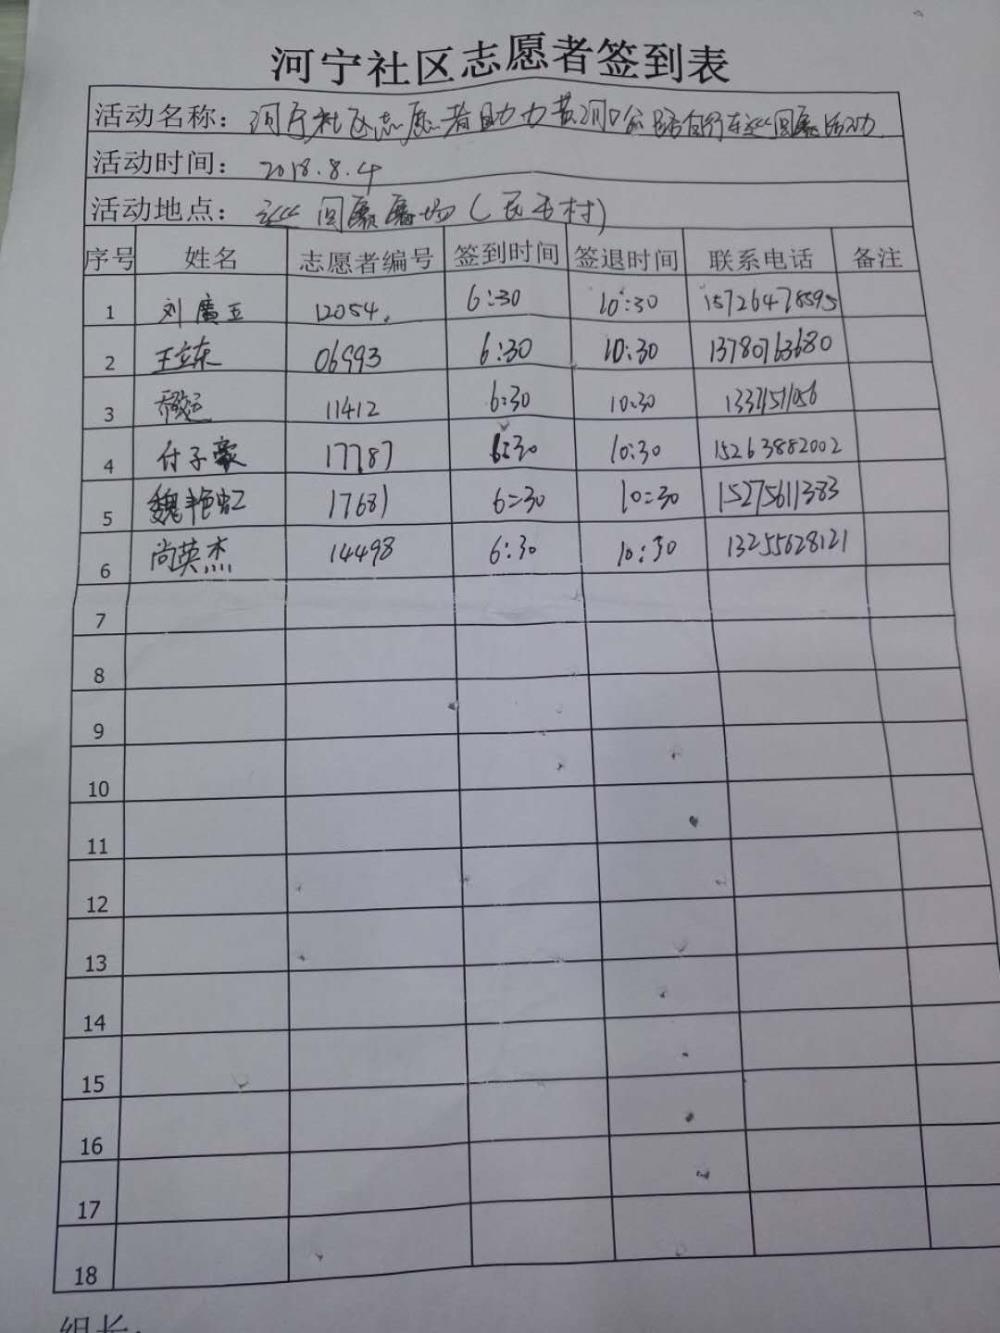 河宁社区志愿者签到表
活动名称：河宁社区志愿者助力黄河口公路自行车
活动时间：2018.8.4
活动地点：(民丰村)
序号 姓名 志愿者编号 签到时间 签退时间 联系电话 备注
1 刘廣玉 12054. 6:30 10:30 15726478595
2 王立东 06993 6:30 10:30 13780763680
3 11412 6:30 10:30
4 付子豪 17787 6:30 10:30 15263882002
5 魏艳虹 17681 6:30 10:30 15275611383
6 尚英杰 14498 6:30 10:30 13255628121
7
8
9
10
11
12
13
14
15
16
17
18
组长：